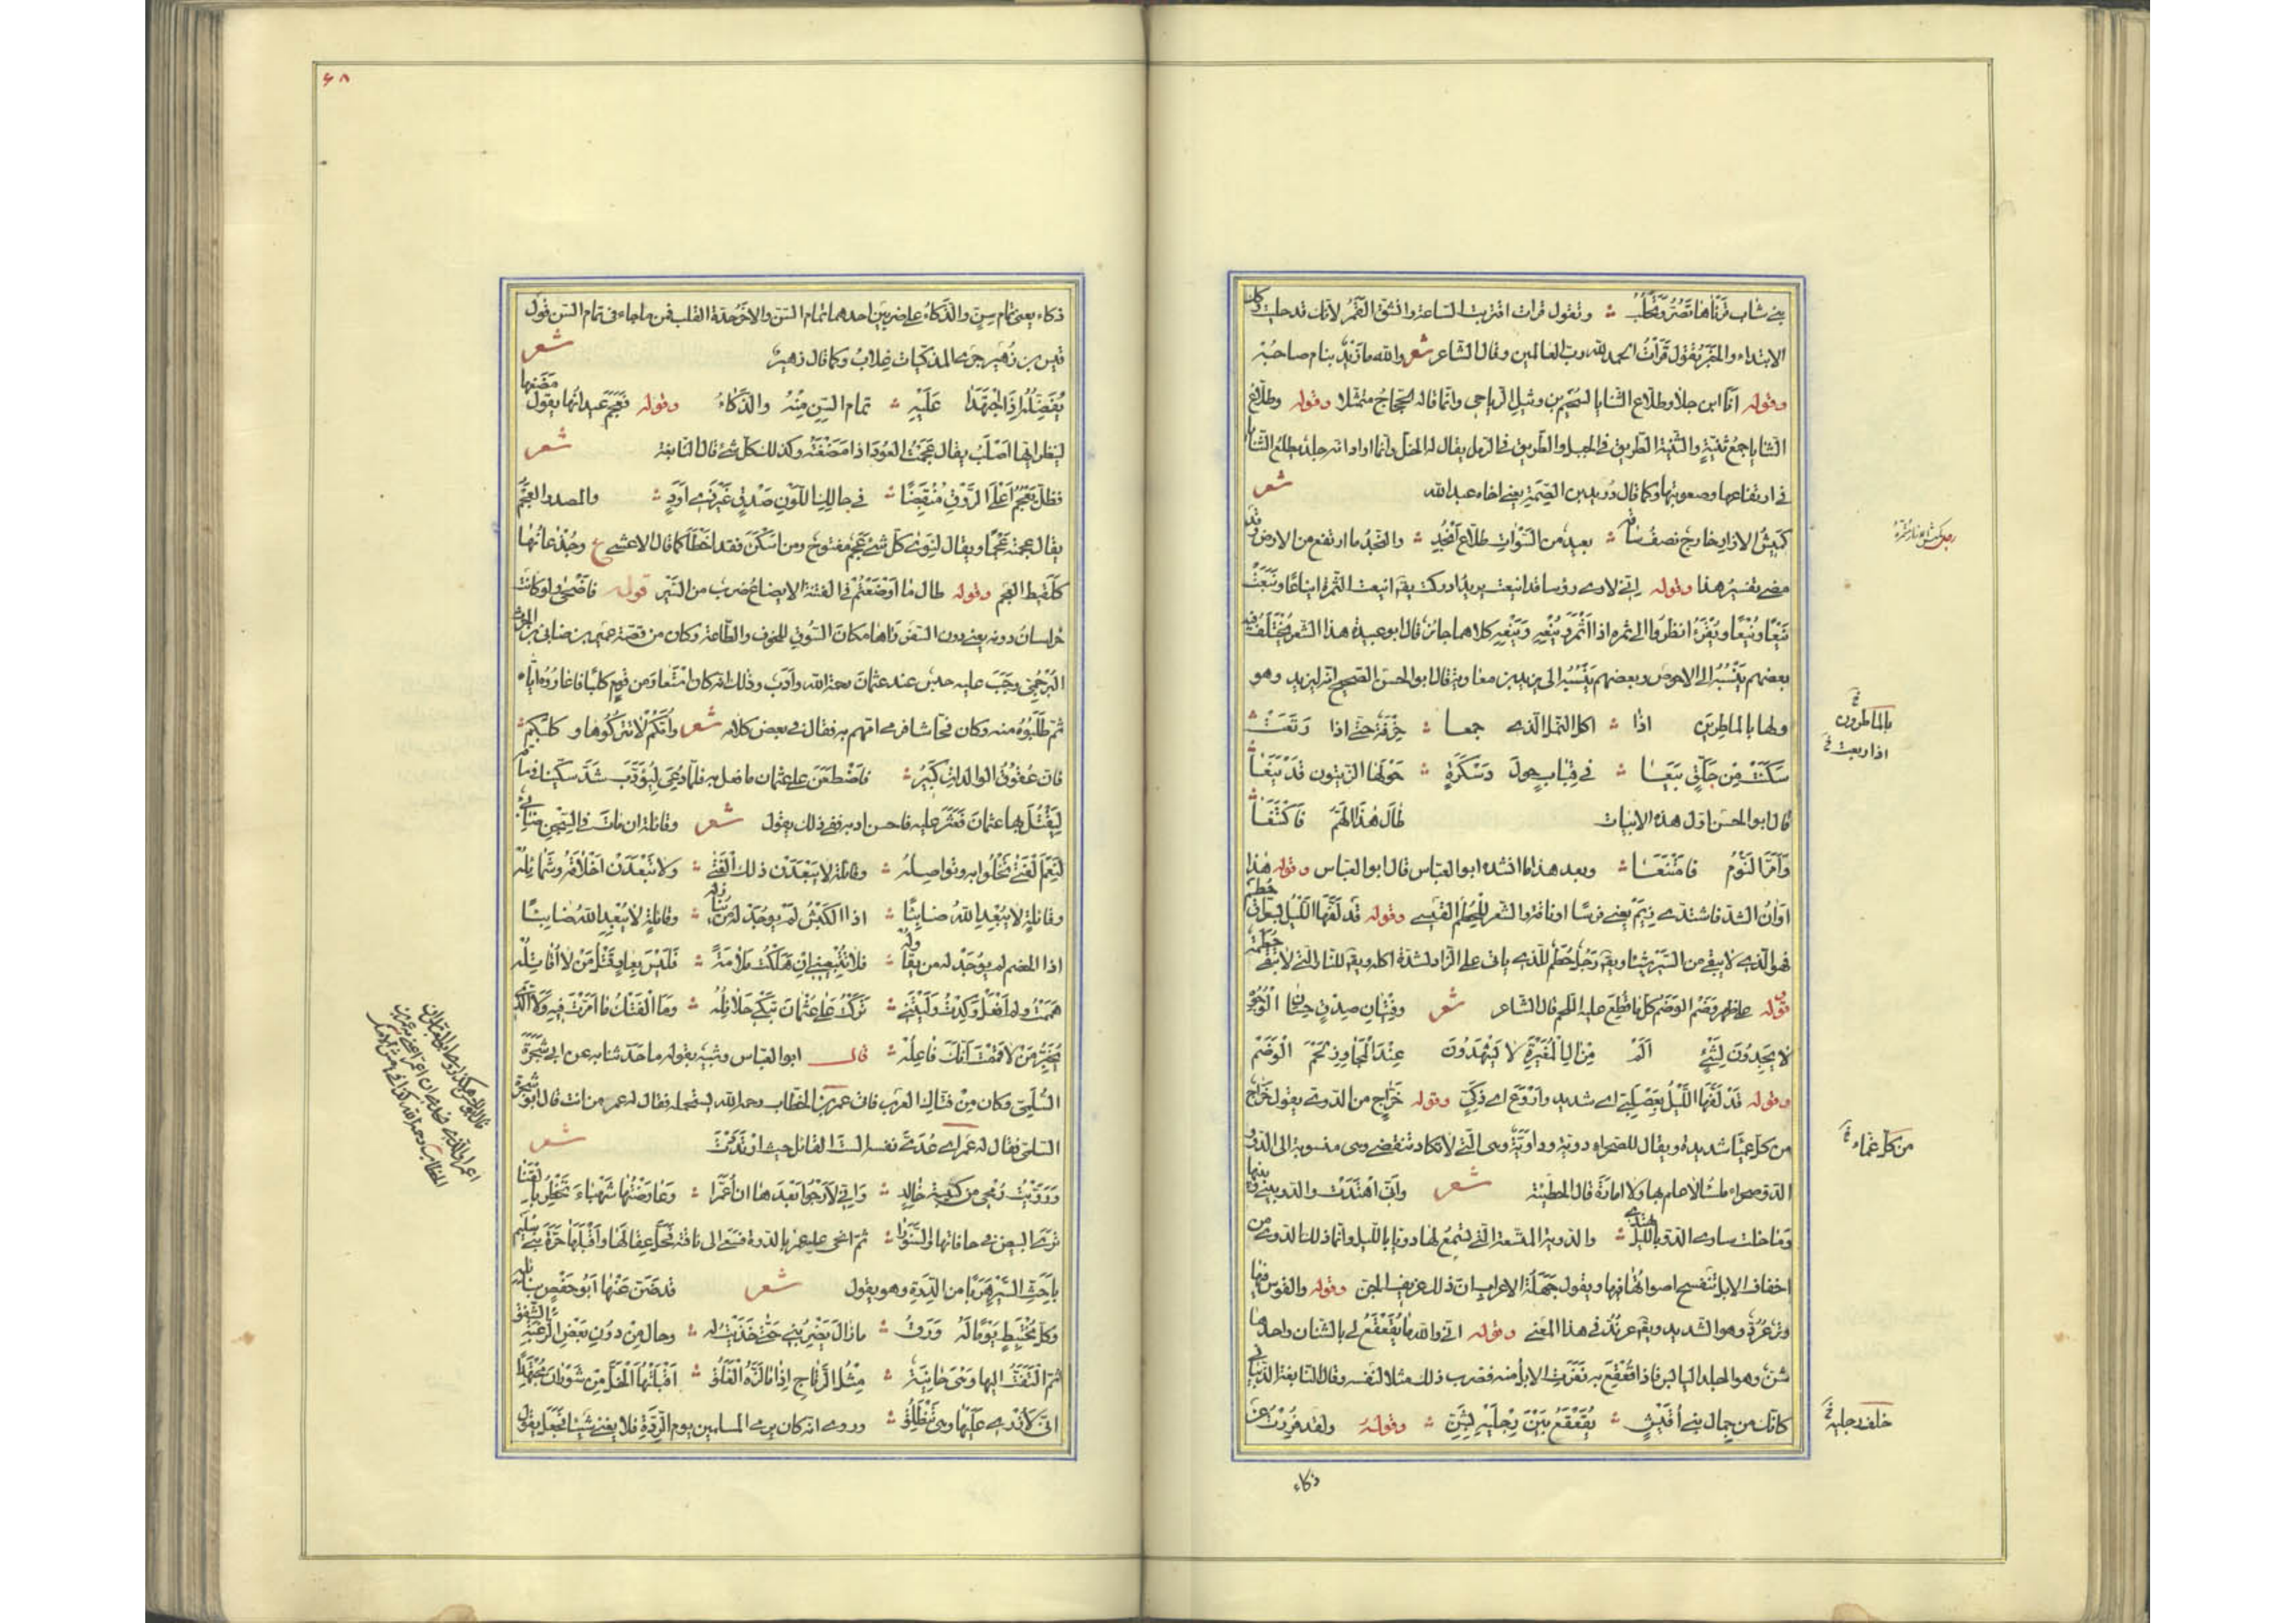 بني شاب قرناها تصر وتحلب ؞ وتقول قرات اقتربت الساعة وانشق القمر لانك قد حليت وكان
الابتداء والخبر تقول قرأت الحمد لله رب العالمين وقال الشاعر شعر والله ما زيد بنام صاحبه
وقوله انا ابن جلا وطلاع الثنايا لسحيم بن وثيل الرياحي وانما قاله الحجاج متمثلا وقوله وطلاع
الثنايا جمع ثنية والثنية الطريق في الجبل والطريق في الرمل يقال له الخل وانما اراد انه جلد يطلع الثنايا
في ارتفاعها وصعوبتها وكما قال دريد بن الصمة يعني اخاه عبد الله شعر
كميش الازار خارج نصف ساقه ؞ بعيد من السوات طلاع انجد ؞ والنجد ما ارتفع من الارض وقد
مضى تفسير هذا وقوله اني لارى رؤسا قد اينعت يريد ادركت يقه اينعت الثمرة ايناعا وينعت
ينعا وينعا ويقرء انظروا الى ثمره اذا اثمر وينعه وينعه كلاهما جائز قال ابو عبيدة هذا الشعر مختلف فيه
بعضهم ينسبه الى الاحوص وبعضهم ينسبه الى يزيد بن معاوية قال ابو الحسن الصحيح انه ليزيد وهو
ولها بالماطرين اذا ؞ اكل النمل الذي جمعا ؞ خرفة حتى اذا رتعت ؞
سكنت من جلق بيعا ؞ في قباب حول دسكرة ؞ حولها الزيتون قد ينعا ؞
قال ابو الحسن اول هذه الابيات طال هذا الهم فاكتنعا ؞
وأمر النوم فامتنعا ؞ وبعد هذا ما انشده ابو العباس قال ابو العباس وقوله هذا
اوان الشد فاشتدي زيم يعني فرسا او ناقة والشعر للحطم القيسي وقوله قد لفها الليل بسواق حطم
فهو الذي لا يبقي من السير شيئا ويقه رجل حطم للذي ياتي على الزاد لشدة اكله ويقه للنار التي لا تبقي حطمة
وقوله على ظهر وضم الوضم كل ما قطع عليه اللحم قال الشاعر شعر وفتيان صدق حسان الوجوه
لا يجدون لشئ الم من ال المغيرة لا يشهدون عند المجاوز لحم الوضم
وقوله قد لفها الليل بعصلبي اي شديد واروع اي ذكي وقوله خراج من الدوي يقول خراج
من كل غما شديدة ويقال للصحراء دوية وداوية وهي التي لا تكاد تنقضي وهي منسوبة الى الدو و
الدو صحراء ملساء لا علم بها ولا امارة قال الحطيئة شعر وانى اهتدت والدو بيني وبينها
وما خلت ساري الدو بالليل يهتدي ؞ والدوية المتسعة التي تسمع لها دويا بالليل وانما ذلك الدوي من
اخفاف الابل تنفسح اصواتها فيها ويقول جهلة الاعراب ان ذلك عزيف الجن وقوله والقوس فيها
وتر عرد وهو الشديد ويقه عرند في هذا المعنى وقوله اني والله ما يقعقع لي بالشنان واحدها
شن وهو الجلد اليابس فاذا قعقع به نفرت الابل منه فضرب ذلك مثلا لنفسه وقال النابغة الذبياني
كانك من جمال بني اقيش ؞ يقعقع بين رجليه بشن ؞ وقوله ولقد فررت عن
ذكاء
بالماطرون خ
اذا ربعت خ
من كل غماء خ
خلف رجليه خ
۶۸
ذكاء يعني تمام سن والذكاء على ضربين احدهما تمام السن والاخر حدة القلب فمن ما جاء في تمام السن قول
قيس بن زهير جري المذكيات غلاب وكما قال زهير شعر
يفضله اذا اجتهدا عليه ؞ تمام السن منه والذكاء وقوله فعجم عيدانها يقول مضغها
لينظر ايها اصلب يقال عجمت العود اذا مضغته وكذلك كل شئ قال النابغة شعر
فظل يعجم اعلى الروق منقبضا ؞ في حالك اللون صدق غير ذي اود ؞ والمصدر العجم
يقال عجمته عجما ويقال لنوى كل شئ عجم مفتوح ومن اسكن فقد اخطأ كما قال الاعشى ع وجذعانها
كلقيط العجم وقوله طال ما اوضعتم في الفتنة الايضاع ضرب من السير قوله فاضحى ولو كانت
خراسان دونه يعني دون السفر راها مكان السوق للخوف والطاعة وكان من قصة عمير بن ضابئ بن الحرث
البرجمي وجب عليه حبس عند عثمان رحمة الله وادب وذلك انه كان استعار من قوم كلبا فاعاروه اياه
ثم طلبوه منه وكان فحاشا فرمى امهم به فقال في بعض كلامه شعر وامكم لا تتركوها وكلبكم ؞
فان عقوق الوالدات كبير ؞ فاضطغن على عثمان ما فعل به فلما دعي ليؤدب شد سكينا في ساقه
ليقتل بها عثمان فعثر عليه فاحسن ادبه ففي ذلك يقول شعر وقائلة ان مات في السجن ضابئ
لنعم الفتى تخلوا به وتواصله ؞ وقائلة لا يبعدن ذلك الفتى ؞ ولا تبعدن اخلاقه وشمائله
وقائلة لا يبعد الله ضابئا ؞ اذا الكبش لم يوجد له من ينازله ؞ وقائلة لا يبعد الله ضابئا
اذا الخصم لم يوجد له من يقاوله ؞ فلا تتبعيني ان هلكت ملامة ؞ فليس بعار قتل من لا اقاتله
هممت ولم افعل وكدت وليتني ؞ تركت على عثمان تبكي حلائله ؞ وما الفتك ما امرت فيه ولا الذي
تخبر من لاقيت انك فاعله ؞ قال ابو العباس وشبيه بقوله ما حدثنا به عن ابي شجرة
السلمي وكان من فتاك العرب فاتى عمر بن الخطاب رحمه الله ليستحمله فقال له عمر من انت قال ابو شجرة
السلمي فقال له عمر اي عدي نفسه الست القائل حيث ارتددت شعر
ورويت رمحي من كتيبة خالد ؞ واني لارجوا بعدها ان اعمرا ؞ وعارضتها شهباء تخطر بالقنا
ترى البيض في حافاتها والسنورا ؞ ثم انحى عليه عمر بالدرة فسعى الى ناقته فحل عقالها واقبلها حرة بني سليم
باحث السير هربا من الدرة وهو يقول شعر قد ضن عنها ابو حفص بنائله
وكل مختبط يوما له ورق ؞ ما زال يضربني حتى خذيت له ؞ وحال من دون بعض الرغبة الشفق
ثم التفت اليها وهي حانية ؞ مثل الرتاج اذا ما لزه الغلق ؞ اقبلتها الخل من شوران مجتهدا
اني لازري عليها وهي تنطلق ؞ وروي انه كان يرمي المسلمين يوم الردة فلا يغني شيئا فجعل يقول